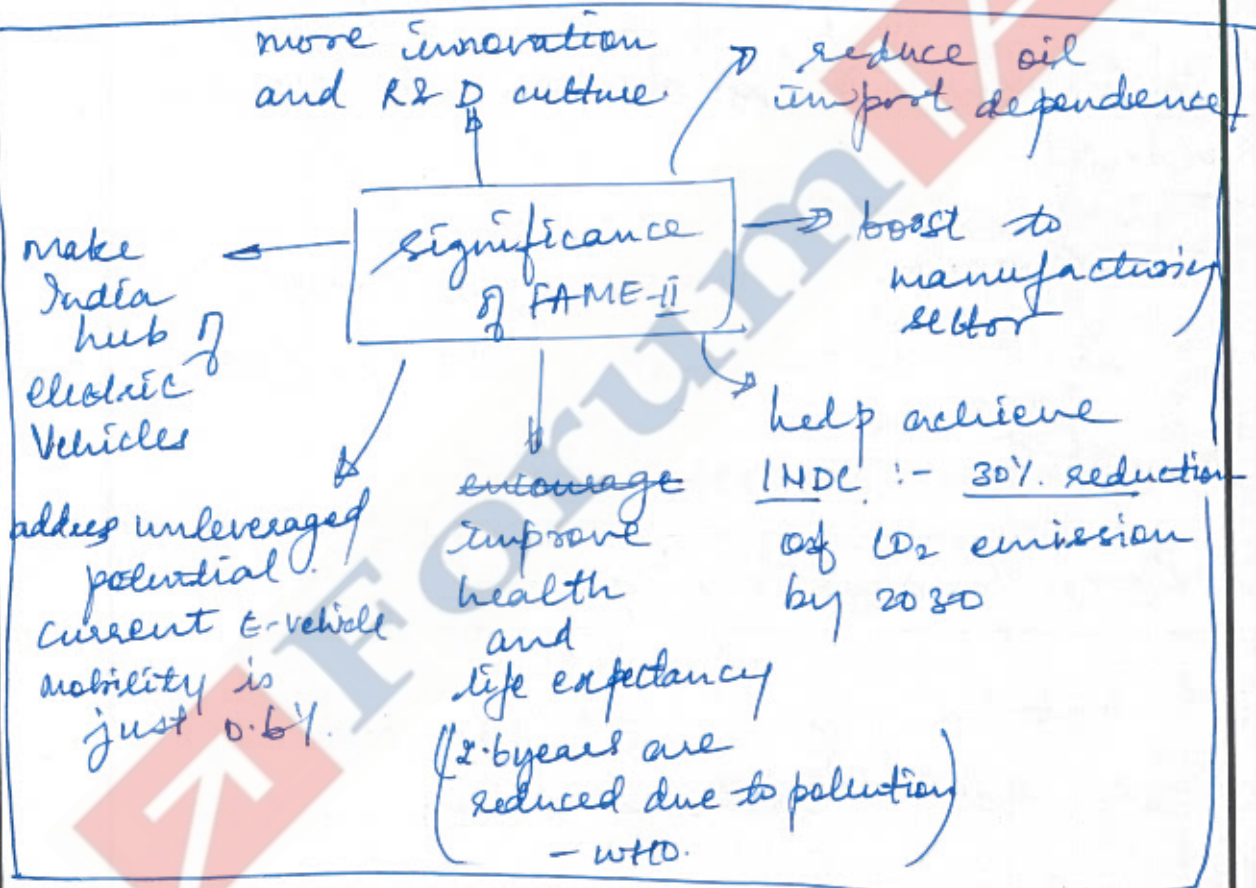 more innovation
and R & D culture.
reduce oil
import dependence
significance
of FAME-II
boost to
manufacturing
sector
make
India
hub of
electric
Vehicles
help achieve
INDC :- 30% reduction
of CO2 emission
by 2030
address unleveraged
potential.
current E-vehicle
mobility is
just 0.6%.
encourage
improve
health
and
life expectancy
(2.6years are
reduced due to pollution)
- WHO.
Forum